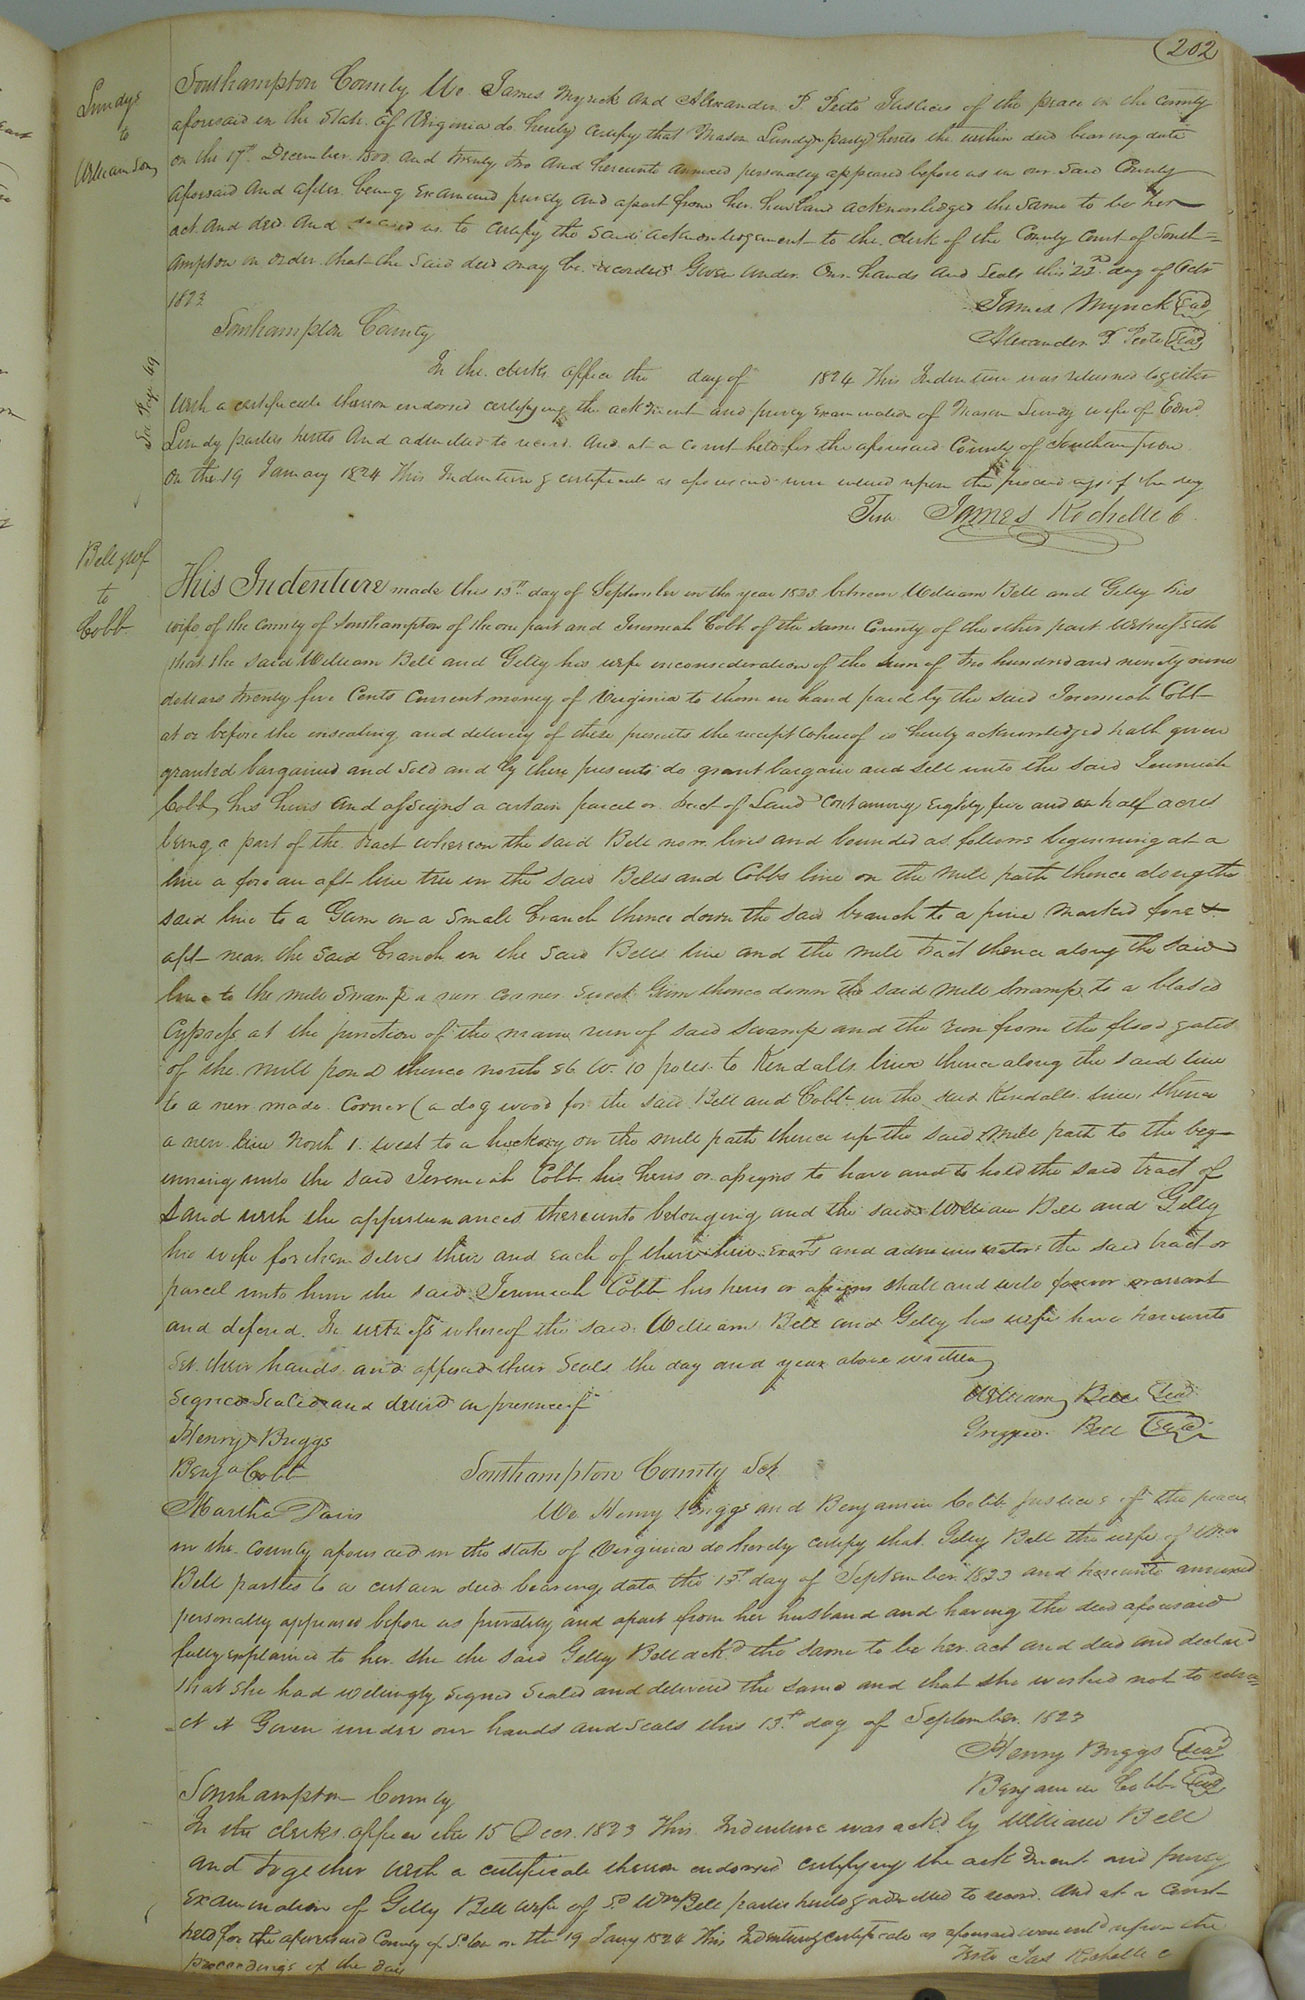 202
Lundys
to
Williamson
Southampton County We James Myrick and Alexander P. Peete Justices of the peace in the county
aforesaid in the State of Virginia do hereby certify that Mason Lundy party hereto the within deed bearing date
on the 17th December 1800 and twenty two and hereunto annexed personally appeared before us in our said County
aforesaid and after being examined privily and apart from her husband acknowledged the same to be her
act and deed and desired us to certify the said acknowledgement to the clerk of the County Court of South=
ampton in order that the said deed may be recorded Given under Our hands and seals this 22nd day of Octr
1823
James Myrick Seal
Alexander P Peete Seal
Southampton County
In the clerks office the day of 1824 This Indenture was returned together
with a certificate thereon endorsed certifying the ackdment and privy examination of Mason Lundy wife of Edwd
Lundy parties hereto And admitted to record. And at a court held for the aforesaid County of Southampton
on the 19 January 1824 This Indenture & certificate as aforesaid were entered upon the proceedings of the day
Teste James Rochelle C
Bell & wf
to
Cobb
This Indenture made this 13th day of September in the year 1823 between William Bell and Gilly his
wife of the County of Southampton of the one part and Jeremiah Cobb of the same County of the other part Witnesseth
that the said William Bell and Gilly his wife in consideration of the sum of two hundred and ninety nine
dollars twenty five Cents Current money of Virginia to them in hand paid by the said Jeremiah Cobb
at or before the ensealing and delivery of these presents the receipt whereof is hereby acknowledged hath given
granted bargained and sold and by these presents do grant bargain and sell unto the said Jeremiah
Cobb his heirs and assigns a certain parcel or tract of Land Containing Eighty five and an half acres
being a part of the tract whereon the said Bell now lives and bounded as follows beginning at a
line a fore an aft line tree in the said Bells and Cobbs line on the Mill path thence along the
said line to a Gum on a small branch thence down the said branch to a pine marked fore &
aft near the said branch in the said Bells line and the mill tract thence along the said
line to the mill swamp a new corner Sweet Gum thence down the said mill swamp to a blazed
Cypress at the junction of the main run of said swamp and the run from the flood gates
of the mill pond thence north 86 W. 10 poles to Kendalls line thence along the said line
to a new made corner (a dog wood for the said Bell and Cobb in the said Kendalls line, thence
a new line North 1. west to a hickory on the mill path thence up the said Mill path to the beg
inning unto the said Jeremiah Cobb his heirs or assigns to have and to hold the said tract of
Land with the appurtenances thereunto belonging and the said William Bell and Gilly
his wife for them selves their and each of their heirs Exors and administrators the said tract or
parcel unto him the said Jeremiah Cobb his heirs or assigns shall and will forever warrant
and defend. In witness whereof the said William Bell and Gilly his wife have hereunto
set their hands and affixed their seals the day and year above written
Signed Sealed and delivd in presence of
William Bell Seal
Bell Seal
Henry Briggs
Benja Cobb
Martha Davis
Southampton County Sct
We Henry Briggs and Benjamin Cobb Justices of the peace
in the County aforesaid in the state of Virginia do hereby certify that Gilly Bell the wife of Wm
Bell parties to a certain deed bearing date the 13th day of September 1823 and hereunto annexed
personally appeared before us privately and apart from her husband and having the deed aforesaid
fully explained to her she the said Gilly Bell ackd the same to be her act and deed and declard
that she had willingly signed Sealed and delivered the same and that she wished not to retra=
ct it Given under our hands and seals this 13th day of September 1823
Henry Briggs Seal
Benjamin Cobb Seal
Southampton County
In the clerks office the 15 Decr. 1823 This Indenture was ackd by William Bell
and together with a certificate thereon endorsed certifying the ackdment and privy
examination of Gilly Bell wife of sd Wm Bell parties hereto & admitted to record. And at a Court
held for the aforesaid County of So.ton on the 19 Jany 1824 This Indenture & certificate as aforesaid were entd upon the
proceedings of the day
Teste Jas Rochelle C